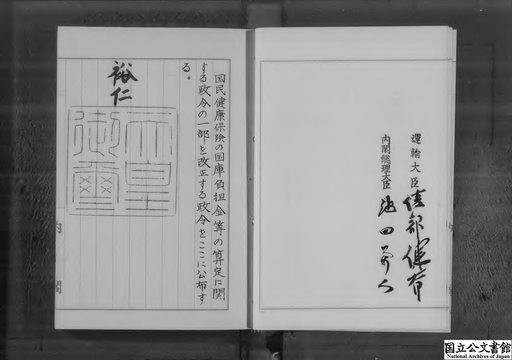 運輸大臣
綾部健太郎
内閣総理大臣
池田勇人
国民健康保険の国庫負担金等の算定に関
する政令の一部を改正する政令をここに公布す
る。
裕仁
天皇
御璽
内閣
国立公文書館
National Archives of Japan